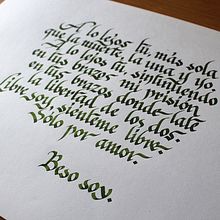 A lo lejos tú, más sola
que tu muerte, la una y yo.
A lo lejos tú, sintiendo
en tus brazos mi prisión,
en tus brazos donde late
la libertad de los dos.
Libre soy, siénteme libre.
Sólo por amor.
Beso soy.